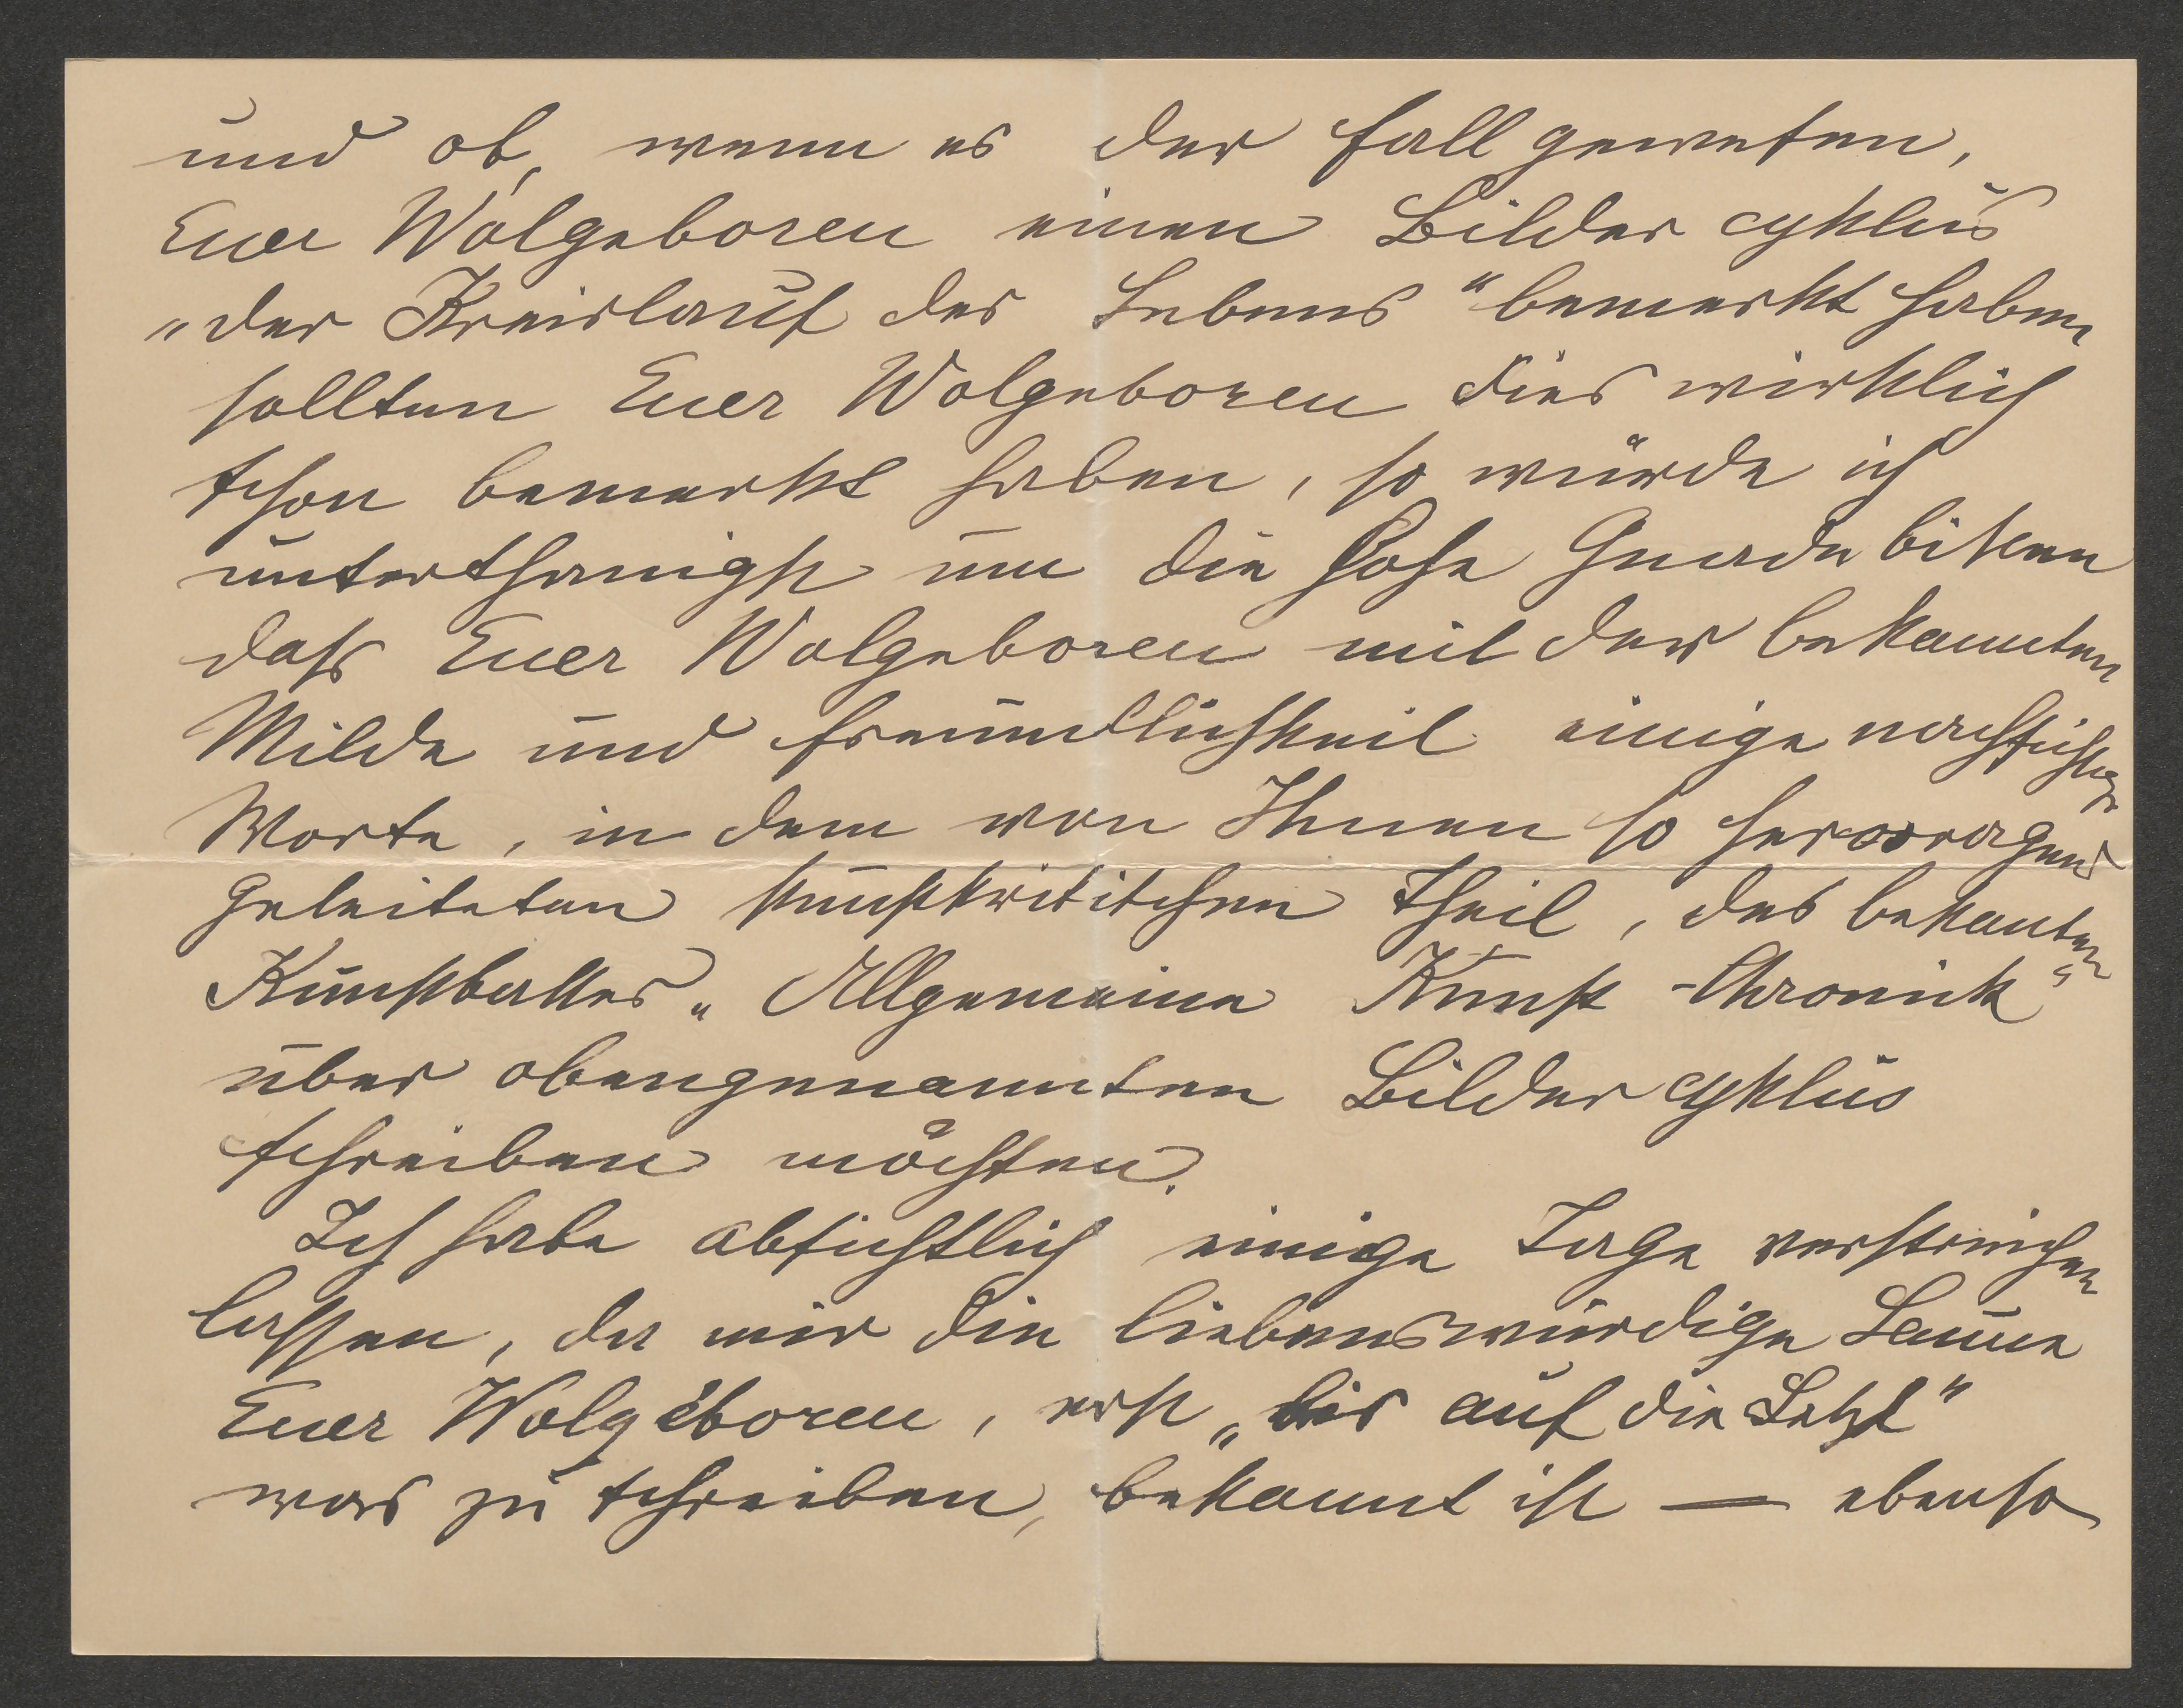 und ob, wenn es der Fall gewesen,
Euer Wolgeboren einen Bilder cyklus
„der Kreislauf des Lebens" bemerkt haben
sollten Euer Wolgeboren dies wirklich
schon bemerkt haben, so würde ich
unterthanigst um die hohe Gnade bitten
daß Euer Wolgeboren mit der bekannten
Milde und Freundlichkeit einige nachsichtige
Worte, in dem von Ihnen so hervorragend
geleiteten kunstkritischen Theil, des bekanten
Kunstblattes „Allgemeine Kunst-Chronik"
über obengenannten Bilder cyklus
schreiben möchten.
Ich habe absichtlich einige Tage verstreichen
lassen, da mir die liebenswürdige Laune
Euer Wolgeboren, erst „bis auf die Letzt"
was zu schreiben, bekannt ist — ebenso